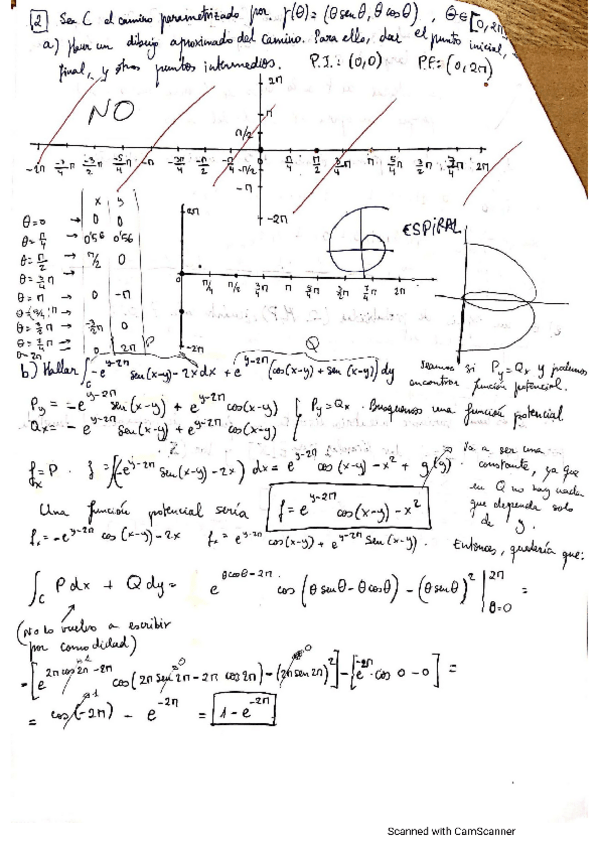 2 Sea C el camino parametrizado por γ(θ) = (θ senθ, θ cosθ), θ ∈ [0, 2π
a) Hacer un dibujo aproximado del camino. Para ello, dar el punto inicial,
final, y otros puntos intermedios. P.I.: (0,0) P.F.: (0, 2π)
NO
2π
π
π/2
-2π -7/4π -3/2π -5/4π -π -3π/4 -π/2 -π/4 0 π/4 π/2 3/4π π 5/4π 3/2π 7/4π 2π
-π/2
-π
-2π
x y
θ=0 → 0 0
θ=π/4 → 0'56 0'56
θ=π/2 → π/2 0
θ=3/4π →
θ=π → 0 -π
θ=5/4π →
θ=3/2π → -3/2π 0
θ=7/4π →
θ=2π 0 2π
2π
0 π/4 π/2 3/4π π 5/4π 3/2π 7/4π 2π
-2π
ESPIRAL
P Q
b) Hallar ∫C -e^{y-2π} sen(x-y) - 2x dx + e^{y-2π} (cos(x-y) + sen(x-y)) dy
veamos si Py = Qx y podemos
encontrar función potencial.
Py = -e^{y-2π} sen(x-y) + e^{y-2π} cos(x-y)
Qx = -e^{y-2π} sen(x-y) + e^{y-2π} cos(x-y)
Py = Qx. Busquemos una función potencial.
f = P. f = ∫(-e^{y-2π} sen(x-y) - 2x) dx = e^{y-2π} cos(x-y) - x² + g(y)
Va a ser una
constante, ya que
en Q no hay nada
que dependa solo
de y.
Una función potencial sería f = e^{y-2π} cos(x-y) - x²
fx = -e^{y-2π} cos(x-y) - 2x fx = e^{y-2π} cos(x-y) + e^{y-2π} sen(x-y).
Entonces, quedaría que:
∫C Pdx + Qdy = e^{θcosθ-2π} cos(θ senθ - θcosθ) - (θ senθ)² |_{θ=0}^{2π} =
(No lo vuelvo a escribir
por comodidad)
= [e^{2π cos2π - 2π} cos(2π sen2π - 2π cos2π) - (2π sen2π)²] - [e^{-2π} · cos 0 - 0] =
= cos(-2π) - e^{-2π} = 1 - e^{-2π}
Scanned with CamScanner